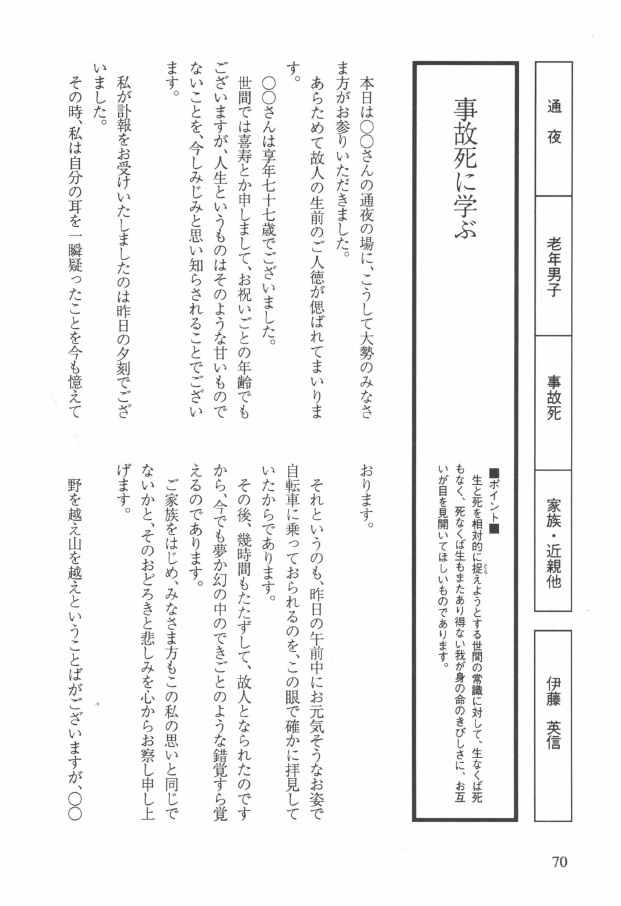 通夜
老年男子
事故死
家族・近親他
伊藤 英信
事故死に学ぶ
■ポイント■
生と死を相対的に捉えようとする世間の常識に対して、生なくば死
もなく、死なくば生もまたあり得ない我が身の命のきびしさに、お互
いが目を見開いてほしいものであります。
本日は〇〇さんの通夜の場に、こうして大勢のみなさ
ま方がお参りいただきました。
あらためて故人の生前のご人徳が偲ばれてまいりま
す。
〇〇さんは享年七十七歳でございました。
世間では喜寿とか申しまして、お祝いごとの年齢でも
ございますが、人生というものはそのような甘いもので
ないことを、今しみじみと思い知らされることでござい
ます。
私が訃報をお受けいたしましたのは昨日の夕刻でござ
いました。
その時、私は自分の耳を一瞬疑ったことを今も憶えて
おります。
それというのも、昨日の午前中にお元気そうなお姿で
自転車に乗っておられるのを、この眼で確かに拝見して
いたからであります。
その後、幾時間もたたずして、故人となられたのです
から、今でも夢か幻の中のできごとのような錯覚すら覚
えるのであります。
ご家族をはじめ、みなさま方もこの私の思いと同じで
ないかと、そのおどろきと悲しみを心からお察し申し上
げます。
野を越え山を越えということばがございますが、〇〇
70